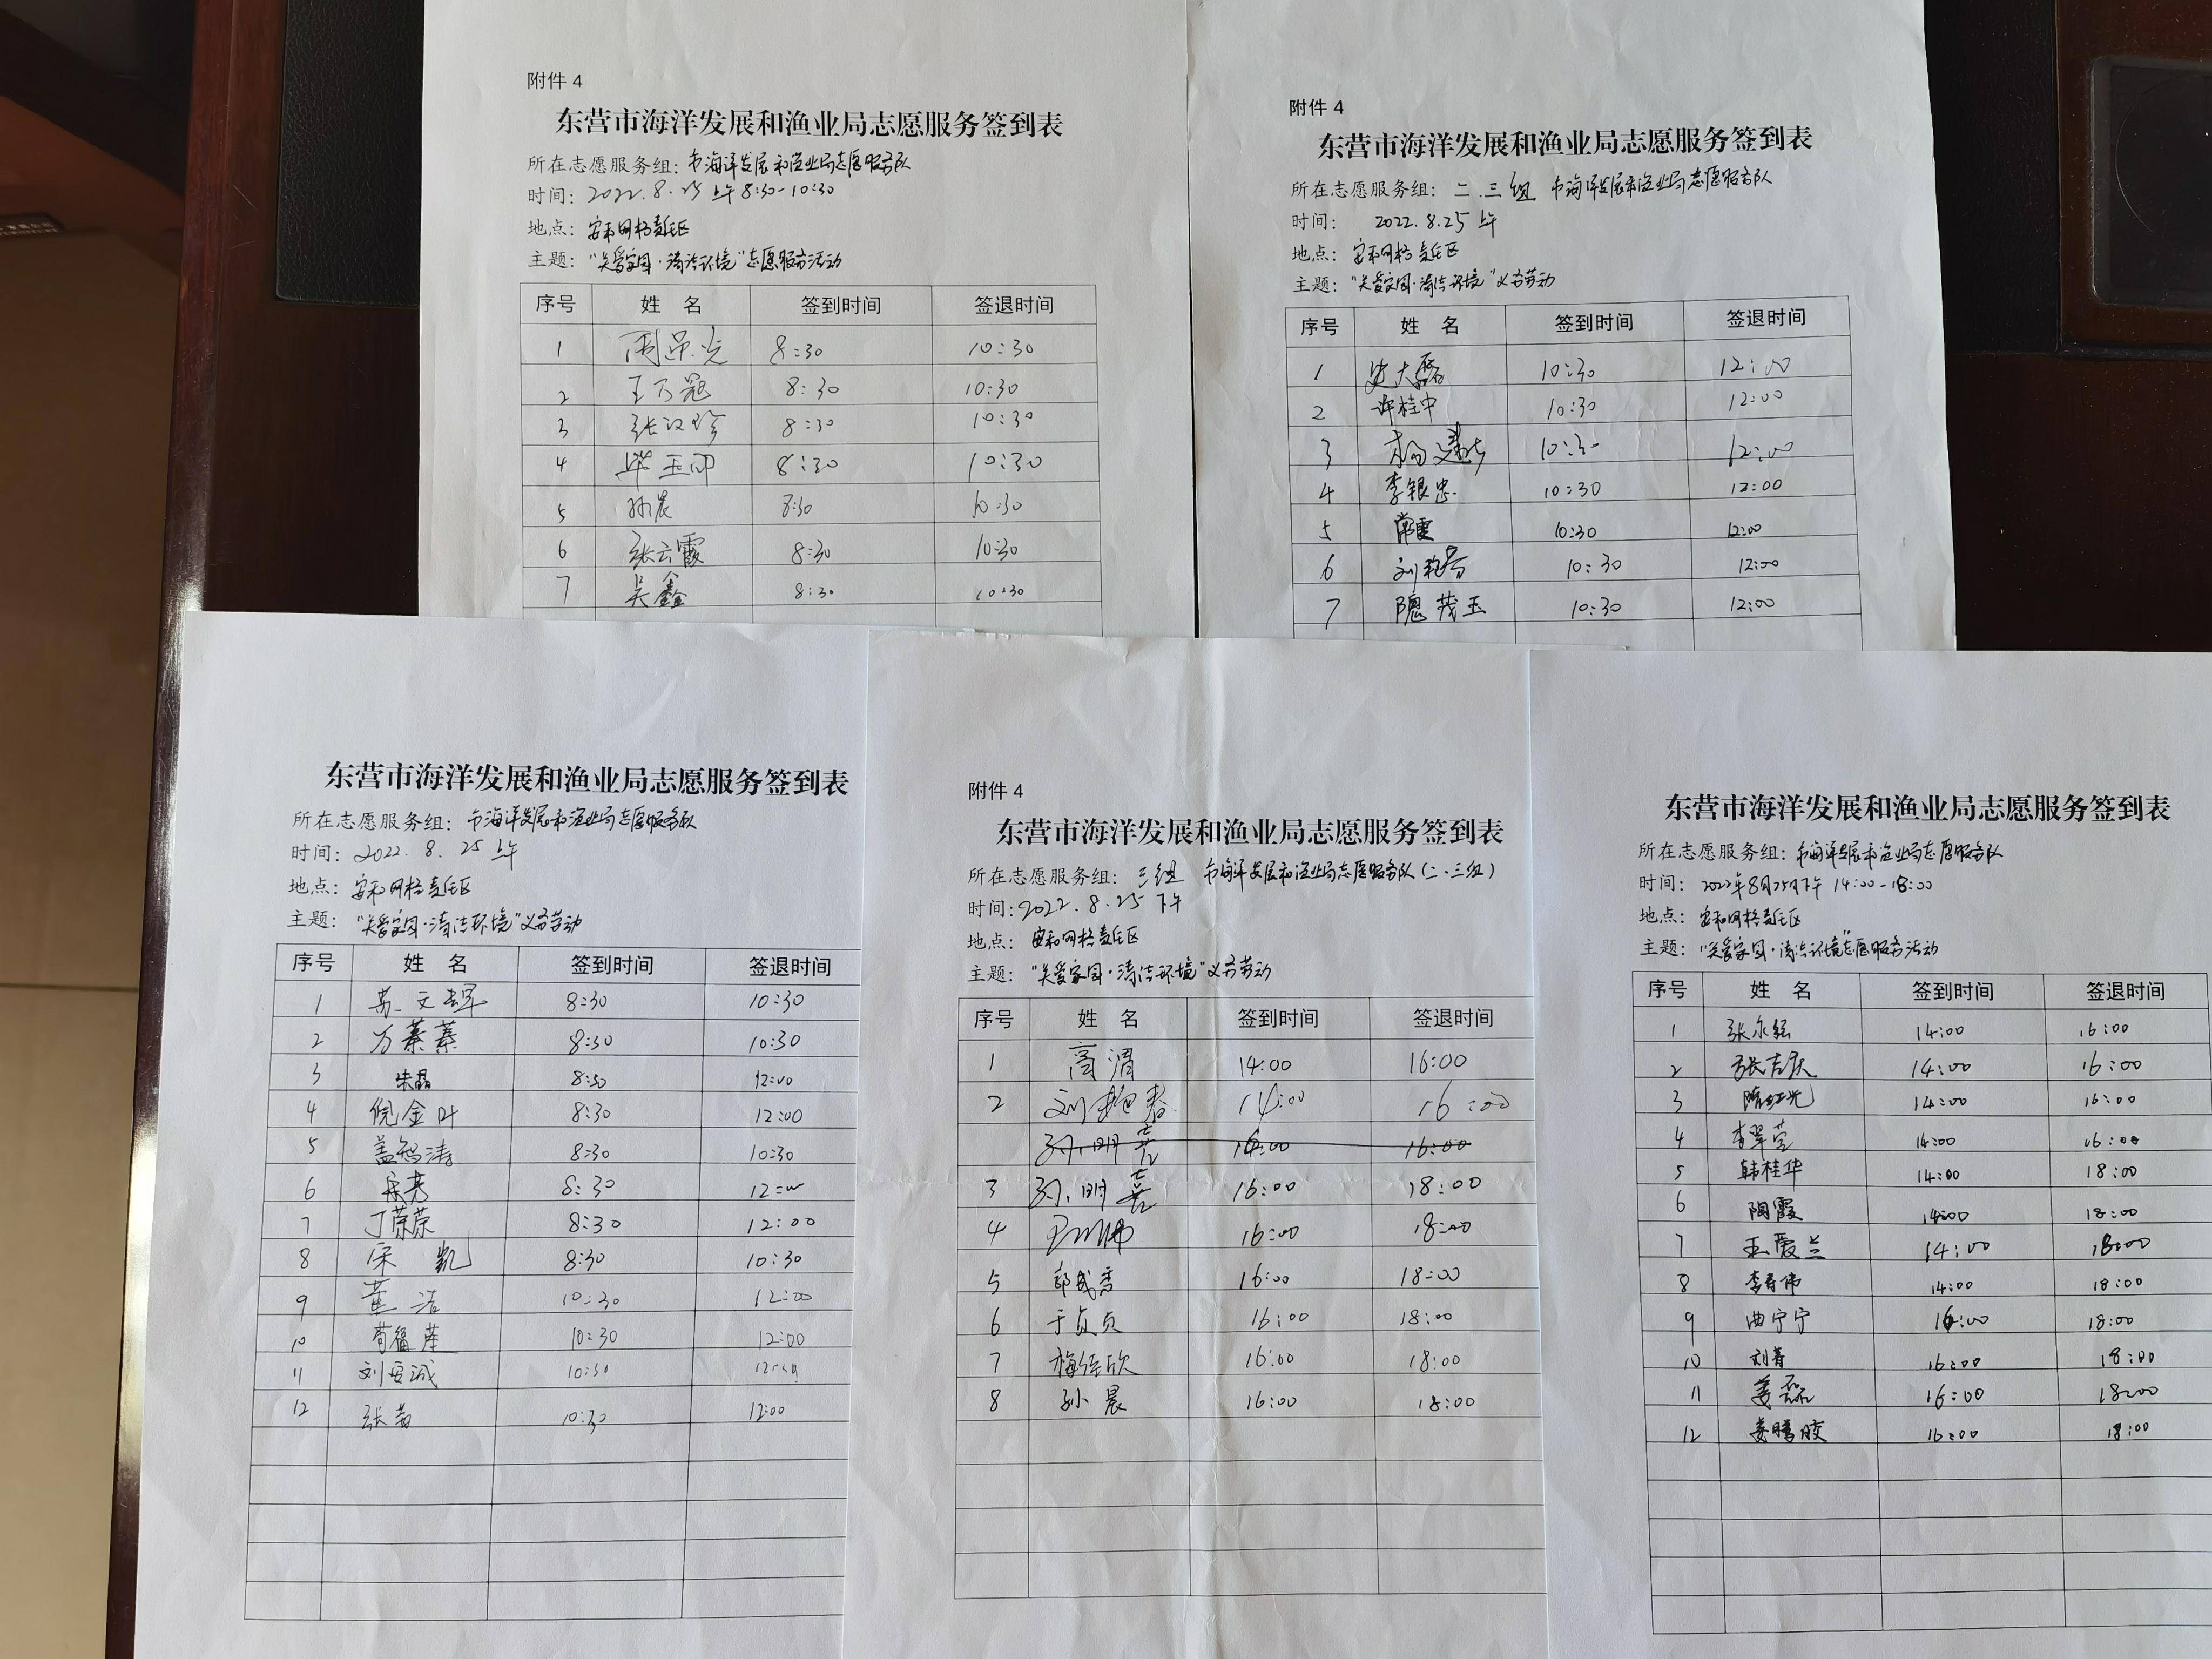 附件 4
东营市海洋发展和渔业局志愿服务签到表
所在志愿服务组：市海洋发展和渔业局志愿服务队
时间：2022.8.25 上午 8:30-10:30
地点：安和网格责任区
主题：“关爱家园·清洁环境”志愿服务活动
序号 姓 名 签到时间 签退时间
1 周荣光 8:30 10:30
2 王万冠 8:30 10:30
3 张汉珍 8:30 10:30
4 毕玉 8:30 10:30
5 孙晨 8:30 10:30
6 张云霞 8:30 10:30
7 吴鑫 8:30 10:30
附件 4
东营市海洋发展和渔业局志愿服务签到表
所在志愿服务组：二.三组 市海洋发展和渔业局志愿服务队
时间： 2022.8.25 上午
地点：安和网格责任区
主题：“关爱家园·清洁环境”义务劳动
序号 姓 名 签到时间 签退时间
1 史大磊 10:30 12:00
2 许桂中 10:30 12:00
3 杨建 10:30 12:00
4 李银忠 10:30 12:00
5 常雯 10:30 12:00
6 刘艳芬 10:30 12:00
7 隗茂玉 10:30 12:00
东营市海洋发展和渔业局志愿服务签到表
所在志愿服务组：市海洋发展和渔业局志愿服务队
时间：2022.8.25 上午
地点：安和网格责任区
主题：“关爱家园·清洁环境”义务劳动
序号 姓 名 签到时间 签退时间
1 苏文辉 8:30 10:30
2 万蓁蓁 8:30 10:30
3 朱晶 8:30 12:00
4 倪金叶 8:30 12:00
5 盖铭涛 8:30 10:30
6 宋芳 8:30 12:00
7 丁荣荣 8:30 12:00
8 宋凯 8:30 10:30
9 董洁 10:30 12:00
10 荀福莲 10:30 12:00
11 刘安诚 10:30 12:00
12 张茜 10:30 12:00
附件 4
东营市海洋发展和渔业局志愿服务签到表
所在志愿服务组：三组 市海洋发展和渔业局志愿服务队（二.三组）
时间：2022.8.25 下午
地点：安和网格责任区
主题：“关爱家园·清洁环境”义务劳动
序号 姓 名 签到时间 签退时间
1 高渭 14:00 16:00
2 刘艳春 14:00 16:00
孙明亮 14:00 16:00
3 孙明亮 16:00 18:00
4 16:00 18:00
5 郭成香 16:00 18:00
6 于贞贞 16:00 18:00
7 梅佳欣 16:00 18:00
8 孙晨 16:00 18:00
东营市海洋发展和渔业局志愿服务签到表
所在志愿服务组：市海洋发展和渔业局志愿服务队
时间：2022年8月25日下午 14:00-18:00
地点：安和网格责任区
主题：“关爱家园·清洁环境”志愿服务活动
序号 姓 名 签到时间 签退时间
1 张永强 14:00 16:00
2 张吉庆 14:00 16:00
3 隋虹光 14:00 16:00
4 李翠莹 14:00 16:00
5 韩桂华 14:00 18:00
6 陶霞 14:00 18:00
7 王爱兰 14:00 18:00
8 李寿伟 14:00 18:00
9 曲宁宁 16:00 18:00
10 刘菁 16:00 18:00
11 姜磊 16:00 18:00
12 姜腾胶 16:00 18:00